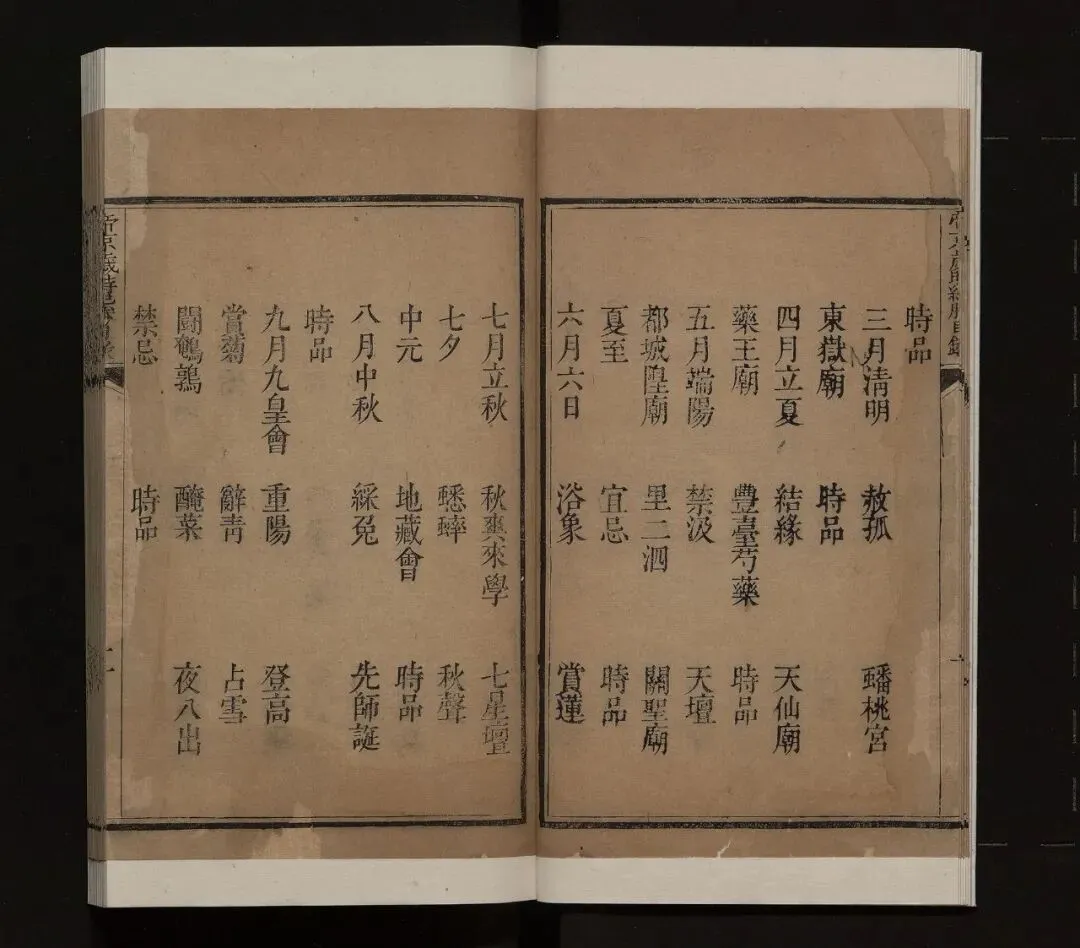 帝京歲時紀勝目錄 一
時品
三月清明 赦孤 蟠桃宮
東嶽廟 時品
四月立夏 結緣 天仙廟
藥王廟 豐臺芍藥 時品
五月端陽 禁汲 天壇
都城隍廟 里二泗 關聖廟
夏至 宜忌 時品
六月六日 浴象 賞蓮
七月立秋 秋爽來學 七星壇
七夕 蟋蟀 秋聲
中元 地藏會 時品
八月中秋 綵兔 先師誕
時品
九月九皇會 重陽 登高
賞菊 辭青 占雪
鬪鵪鶉 醃菜 夜八出
禁忌 時品
帝京歲時紀勝目錄